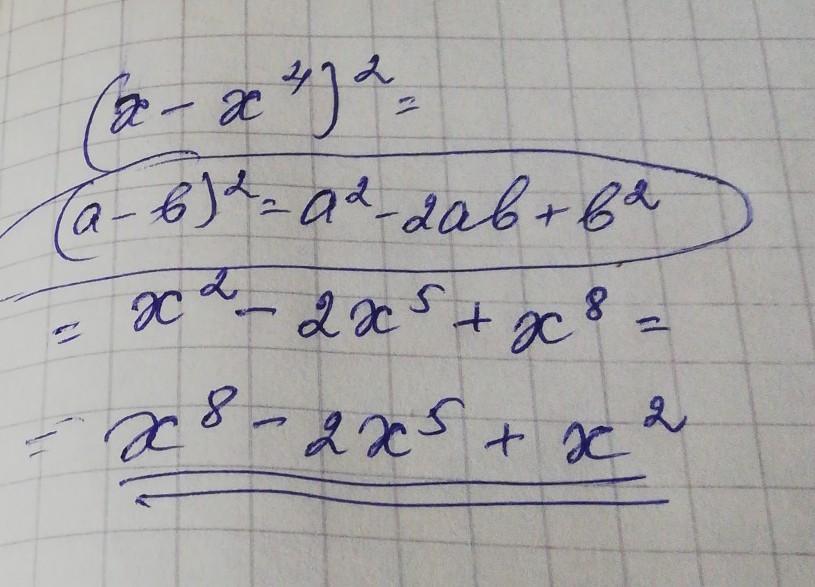 (x - x⁴)² =
(a - b)² = a² - 2ab + b²
= x² - 2x⁵ + x⁸ =
= x⁸ - 2x⁵ + x²